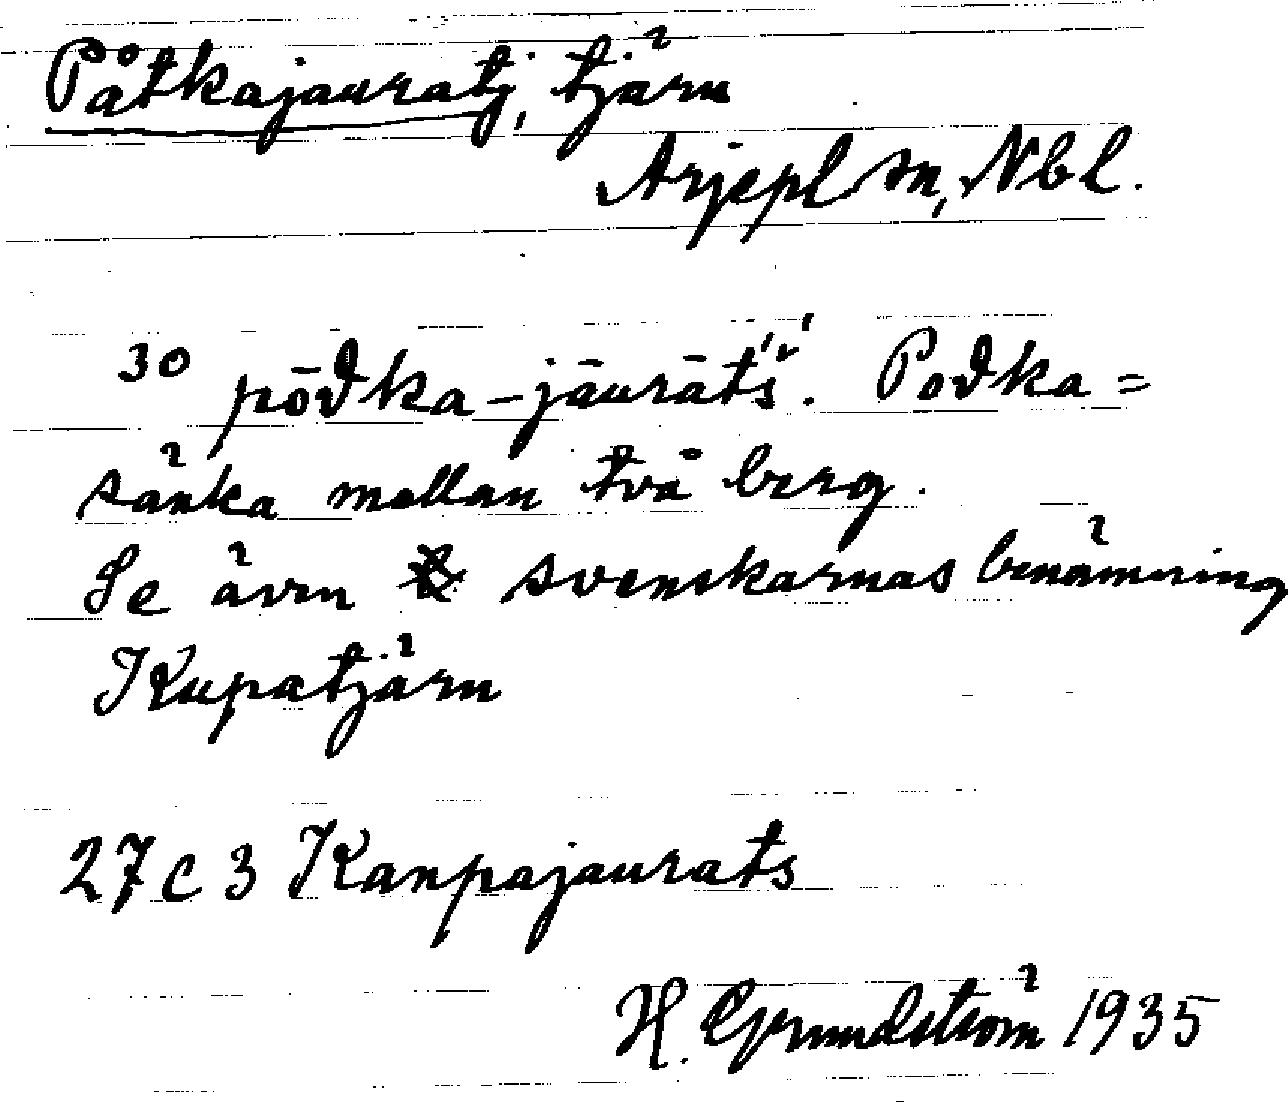 Påtkajauratj, tjärn
Arjepl sn, Nbl.
30 pōđka-jāurāt́š́. Pođka =
sänka mellan två berg.
Se även svenskarnas benämning
Kupatjärn
27 C 3 Kanpajaurats
H. Grundström 1935